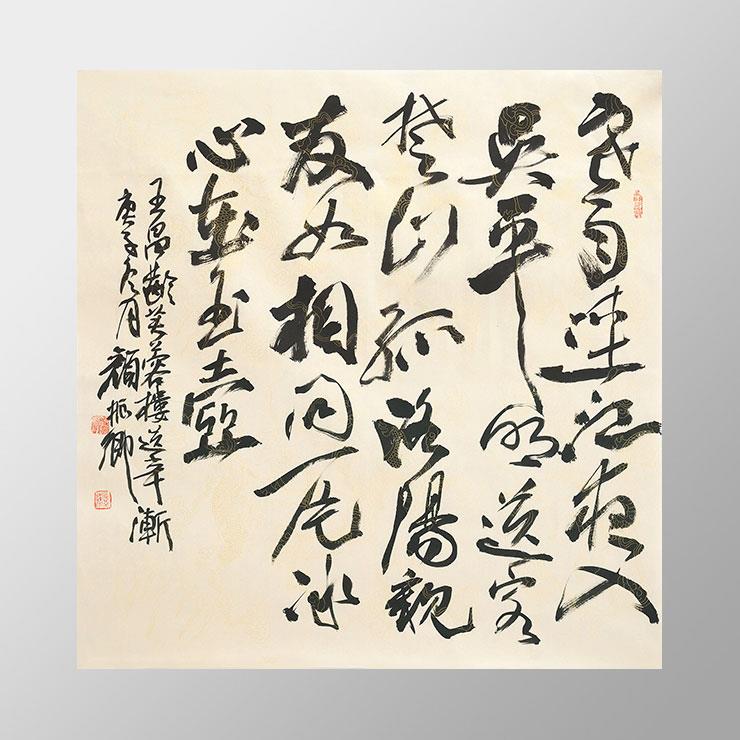 寒雨連江夜入
吳平明送客
楚山孤洛陽親
友如相問一片冰
心在玉壺
王昌齡芙蓉樓送辛漸
庚子冬月顏振卿